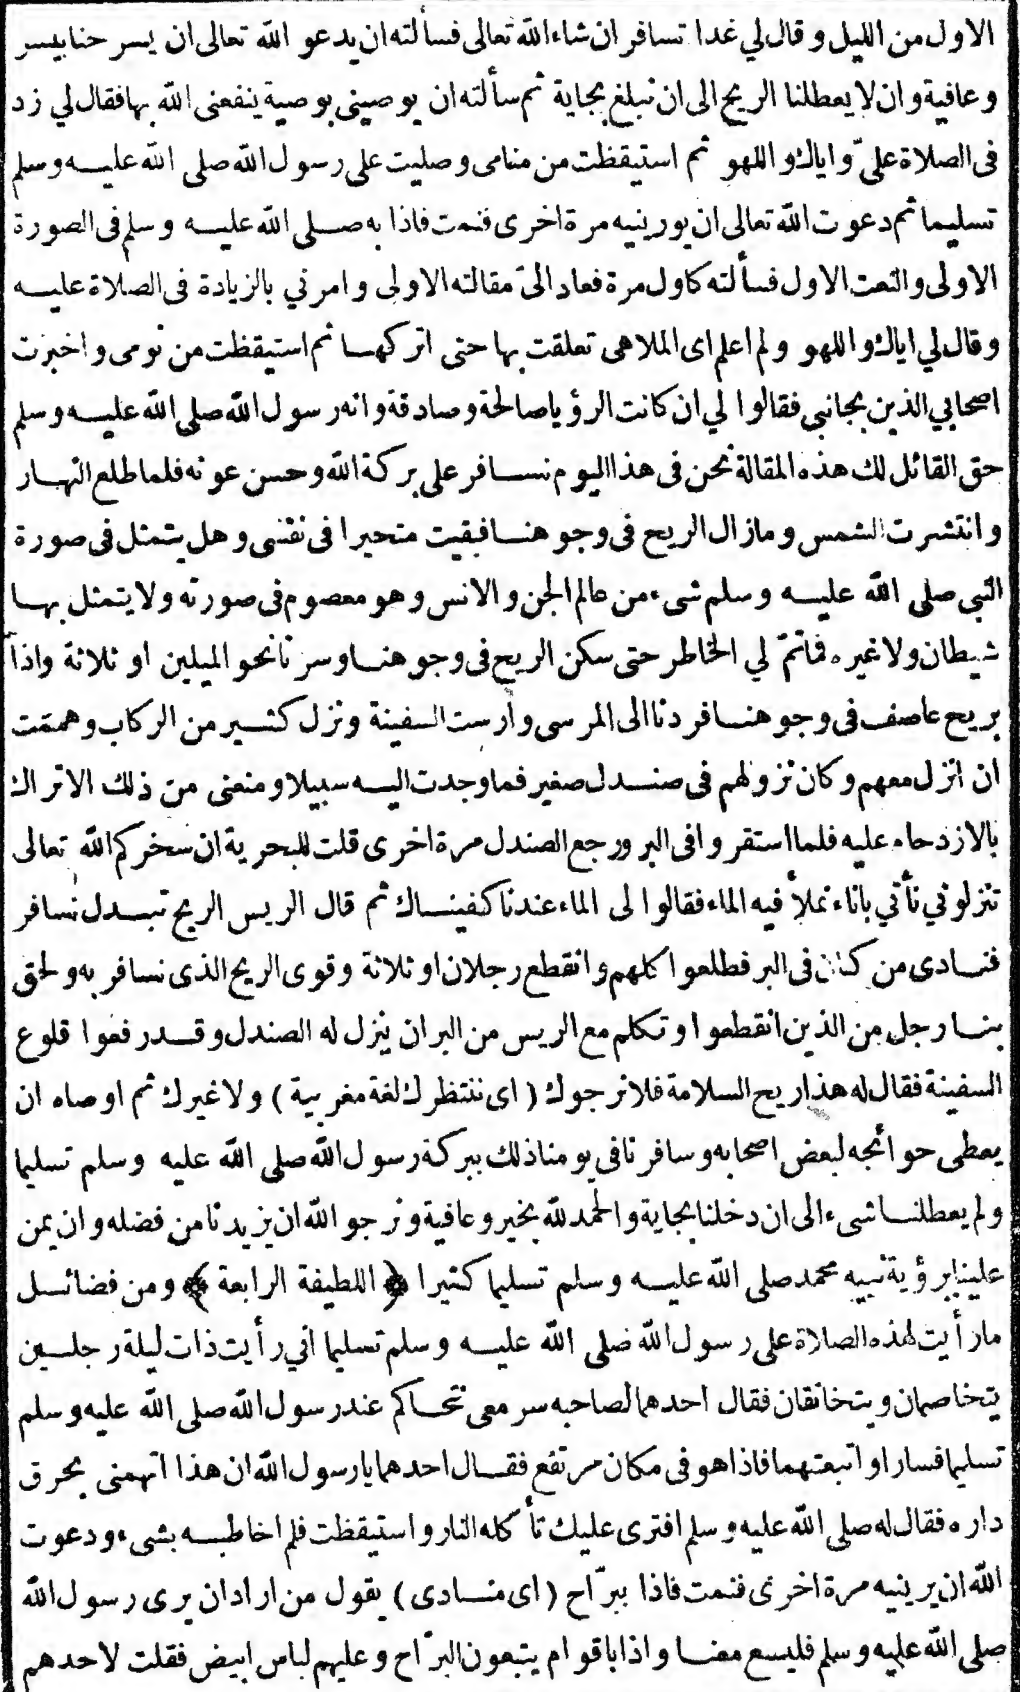 الاول من الليل و قال لي غدا تسافر ان شاء الله تعالى فسألته ان يدعو الله تعالى ان يسر حنا بيسر
و عافية و ان لا يعطلنا الريح الى ان نبلغ بجاية ثم سألته ان يوصيني بوصية ينفعني الله بها فقال لي زد
فى الصلاة علىّ و اياك و اللهو ثم استيقظت من منامى و صليت على رسول الله صلى الله عليه و سلم
تسليما ثم دعوت الله تعالى ان يورينيه مرة اخرى فنمت فاذا به صلى الله عليه و سلم فى الصورة
الاولى و النعت الاول فسألته كاول مرة فعاد الىّ مقالته الاولى و امرني بالزيادة فى الصلاة عليه
و قال لي اياك و اللهو و لم اعلم اى الملاهى تعلقت بها حتى اتركها ثم استيقظت من نومى و اخبرت
اصحابي الذين بجانبى فقالوا لي ان كانت الرؤيا صالحة و صادقة و انه رسول الله صلى الله عليه و سلم
حق القائل لك هذه المقالة نحن فى هذا اليوم نسافر على بركة الله و حسن عونه فلما طلع النهار
و انتشرت الشمس و مازال الريح فى وجوهنا فبقيت متحيرا فى نفسى و هل يتمثل فى صورة
النبى صلى الله عليه و سلم شىء من عالم الجن و الانس و هو معصوم فى صورته و لا يتمثل بها
شيطان و لا غيره فما تمّ لي الخاطر حتى سكن الريح فى وجوهنا و سرنا نحو الميلين او ثلاثة و اذا
بريح عاصف فى وجوهنا فردنا الى المرسى و أرست السفينة و نزل كثير من الركاب و هممت
ان انزل معهم و كان نزولهم فى صندل صغير فما وجدت اليه سبيلا و منعنى من ذلك الاتراك
بالازدحام عليه فلما استقروا فى البر و رجع الصندل مرة اخرى قلت للبحرية ان سخركم الله تعالى
تنزلوني نأتي باناء نملأ فيه الماء فقالوا لى الماء عندنا كفيناك ثم قال الريس الريح تبدل نسافر
فنادى من كان فى البر فطلعوا كلهم و انقطع رجلان او ثلاثة و قوى الريح الذى نسافر به و لحق
بنا رجل من الذين انقطعوا و تكلم مع الريس من البر ان ينزل له الصندل و قد رفعوا قلوع
السفينة فقال له هذا ريح السلامة فلا نرجوك ( اى ننتظرك لغة مغربية ) و لا غيرك ثم اوصاه ان
يعطى حوائجه لبعض اصحابه و سافرنا فى يومنا ذلك ببركة رسول الله صلى الله عليه و سلم تسليما
و لم يعطلنا شىء الى ان دخلنا بجاية و الحمد لله بخير و عافية و نرجو الله ان يزيدنا من فضله و ان يمن
علينا برؤية نبيه محمد صلى الله عليه و سلم تسليما كثيرا ﴿ اللطيفة الرابعة ﴾ و من فضائل
ما رأيت لهذه الصلاة على رسول الله صلى الله عليه و سلم تسليما اني رأيت ذات ليلة رجلين
يتخاصمان و يتخانقان فقال احدهما لصاحبه سر معى نتحاكم عند رسول الله صلى الله عليه و سلم
تسليما فسارا و اتبعتهما فاذا هو فى مكان مرتفع فقال احدهما يا رسول الله ان هذا اتهمنى بحرق
داره فقال له صلى الله عليه و سلم افترى عليك تأكله النار و استيقظت فلم اخاطبه بشىء و دعوت
الله ان يرينيه مرة اخرى فنمت فاذا ببرّاح ( اى منادى ) يقول من اراد ان يرى رسول الله
صلى الله عليه و سلم فليسع معنا و اذا باقوام يتبعون البرّاح و عليهم لباس ابيض فقلت لاحدهم